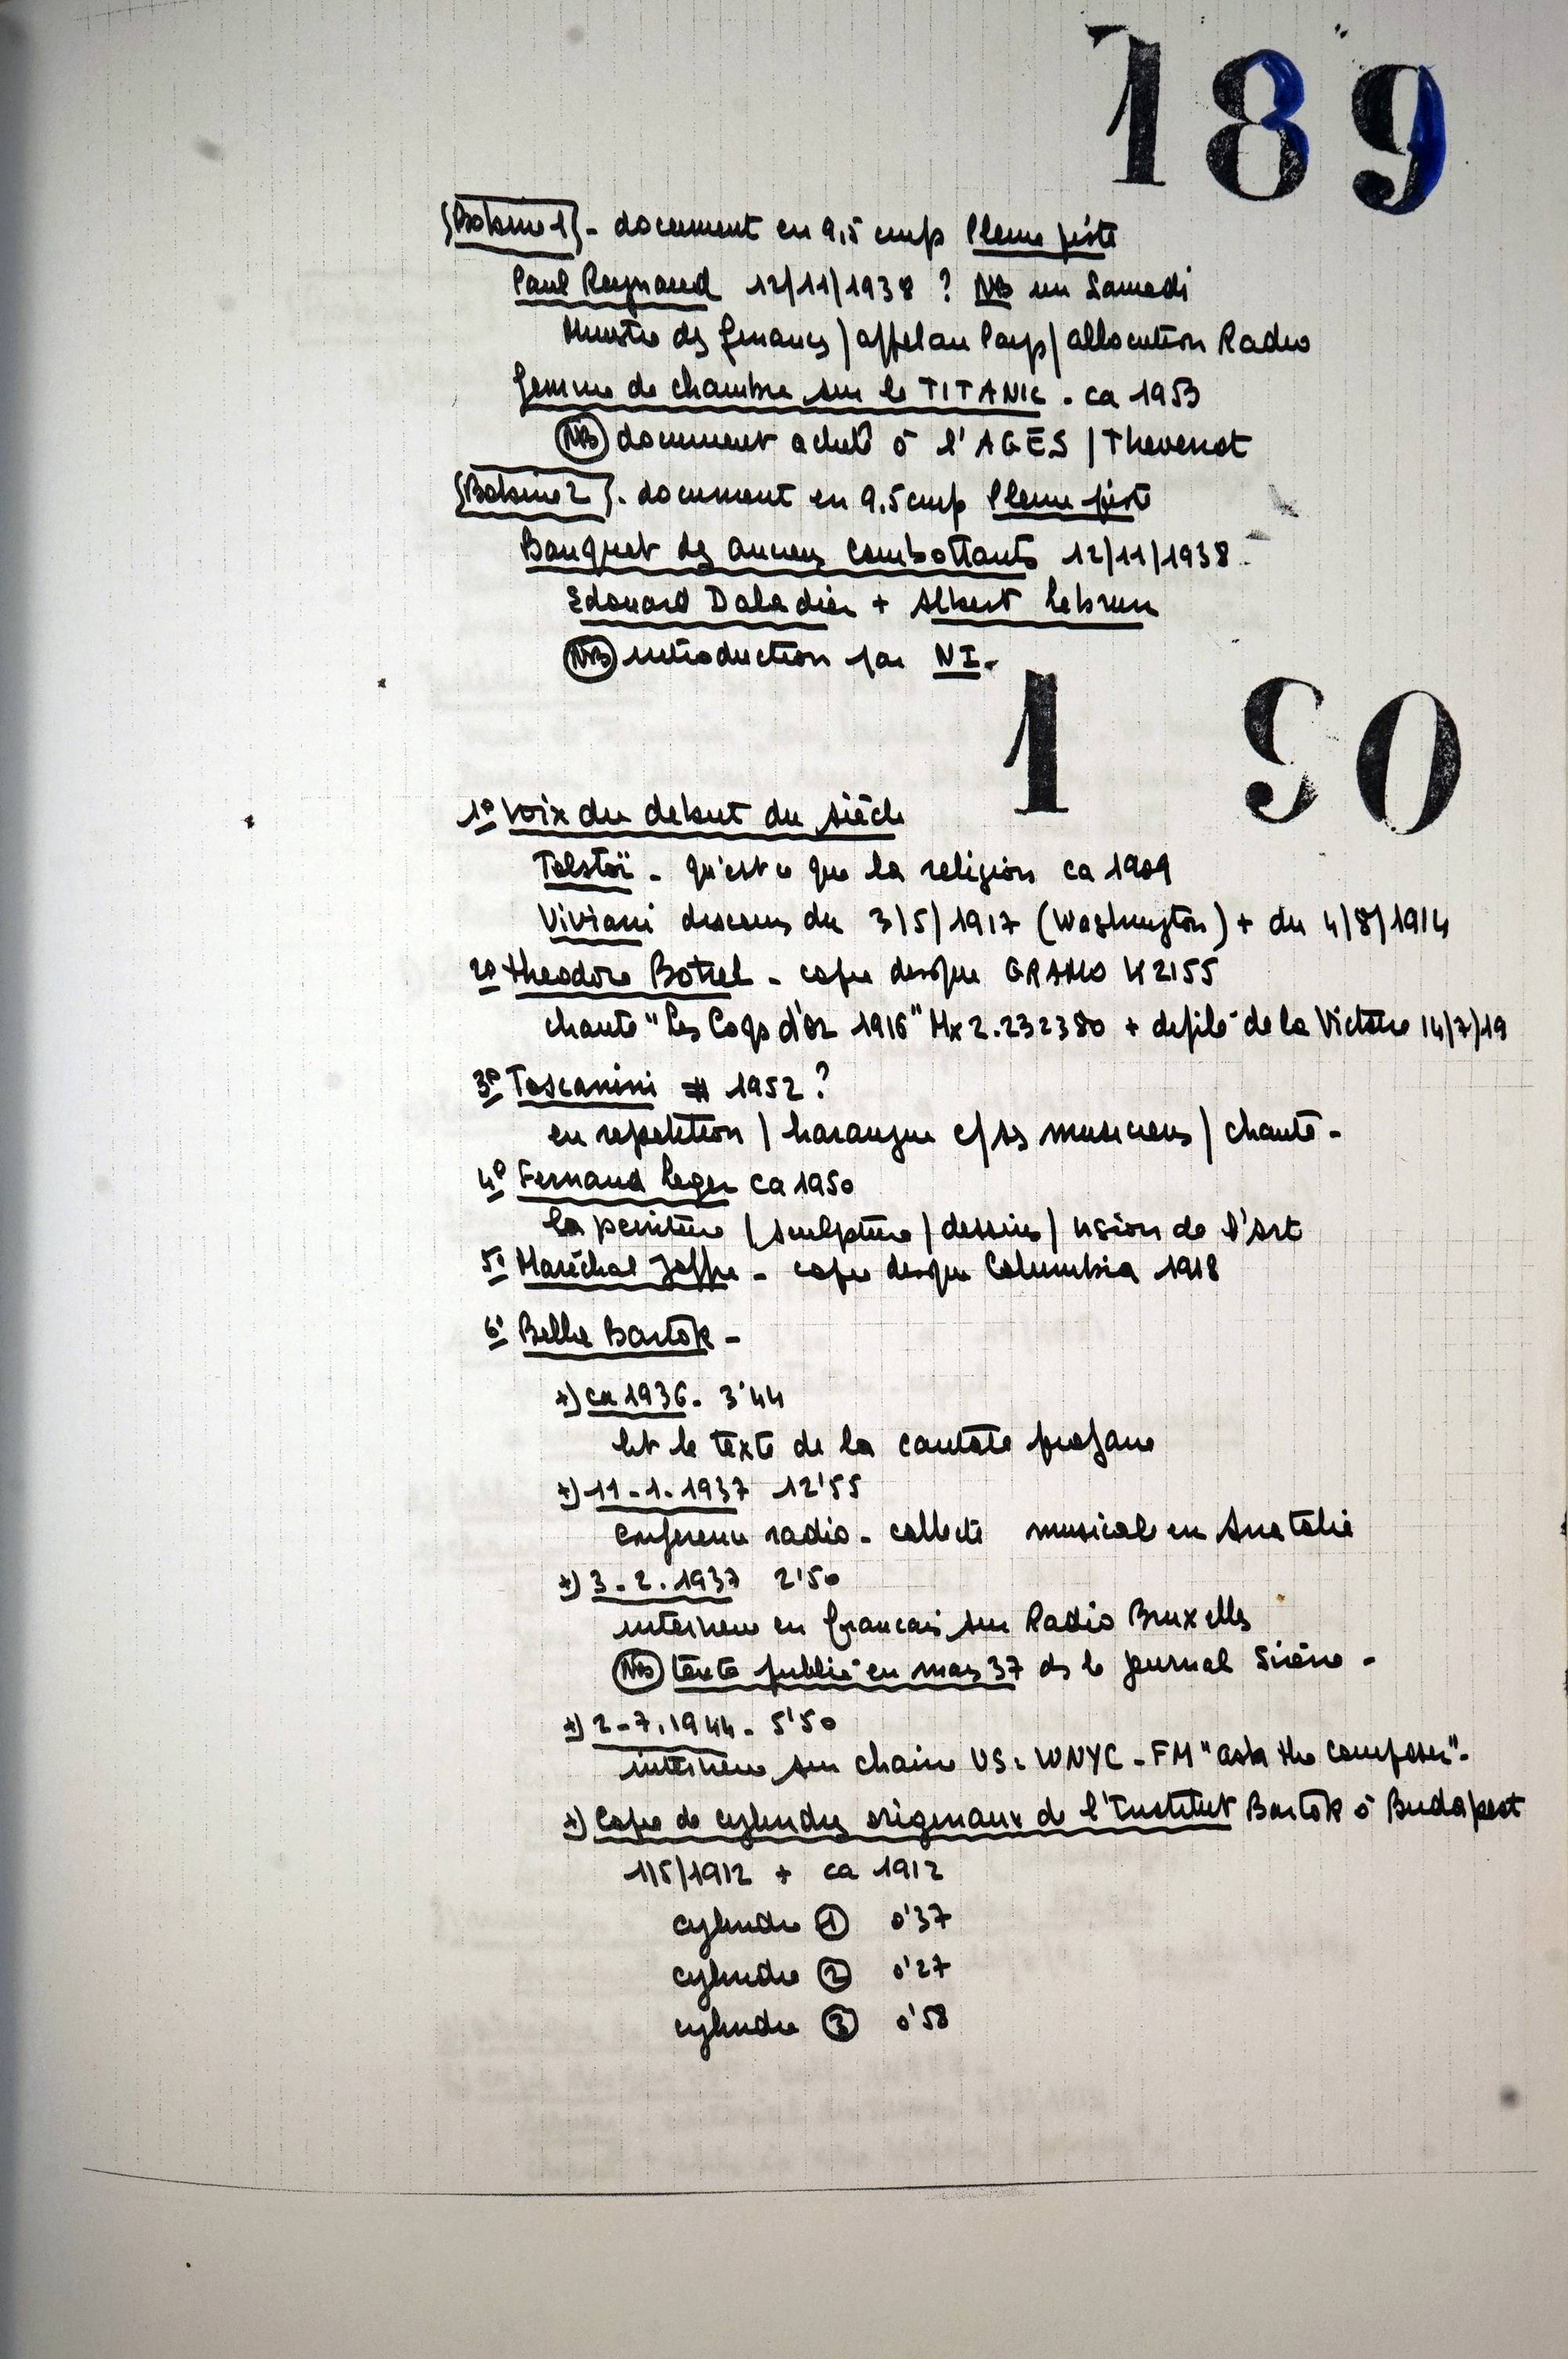 189
{Bobine 1} - document en 9,5 cm/s Pleine piste
Paul Reynaud 12/11/1938 ? NB un Samedi
Ministre des finances / appel au Pays / allocution Radio
femme de chambre sur le TITANIC - ca 1953
NB document acheté à l'AGES / Thevenot
{Bobine 2} - document en 9,5 cm/s Pleine piste
Banquet des anciens combattants 12/11/1938 -
Edouard Daladier + Albert Lebrun
NB introduction par NI.
190
1° Voix du debut du siècle
Tolstoï - qu'est ce que la religion ca 1909
Viviani discours du 3/5/1917 (Washington) + du 4/8/1914
2° Theodore Botrel - copie disque GRAMO K2155
chante "Les Coqs d'Or 1916" Mx 2.232380 + defilé de la Victoire 14/7/19
3° Toscanini # 1952 ?
en repetition / harangue c/ses musiciens / chante -
4° Fernand Leger ca 1950
la peinture / sculpture / dessins / vision de l'Art
5° Maréchal Joffre - copie disque Columbia 1918
6° Bella Bartok -
+) ca 1936. 3'44
lit le texte de la cantate profane
+) 11-1.1937 12'55
conference radio - collecte musicale en Anatolie
+) 3-2.1937 2'50
interview en francais sur Radio Bruxelles
NB texte publié en mars 37 ds le journal Sirène -
+) 2-7.1944 - 5'50
interview sur chaine US : WNYC - FM "ask the composer" -
+) Copie de cylindres originaux de l'Institut Bartok à Budapest
1/5/1912 + ca 1912
cylindre 1 0'37
cylindre 2 0'27
cylindre 3 0'58